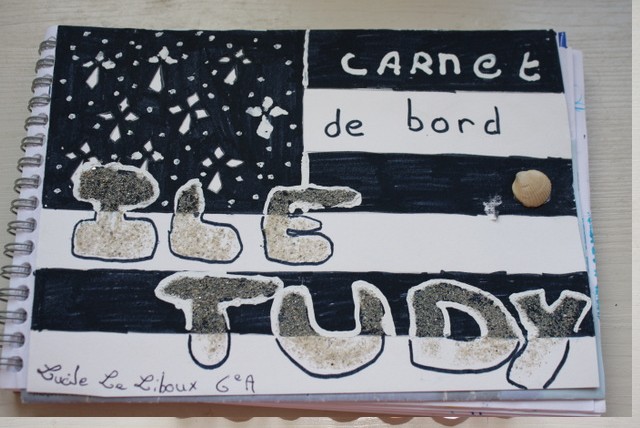 CARNET
de bord
ILE
TUDY
Lucile Le Liboux 6eA